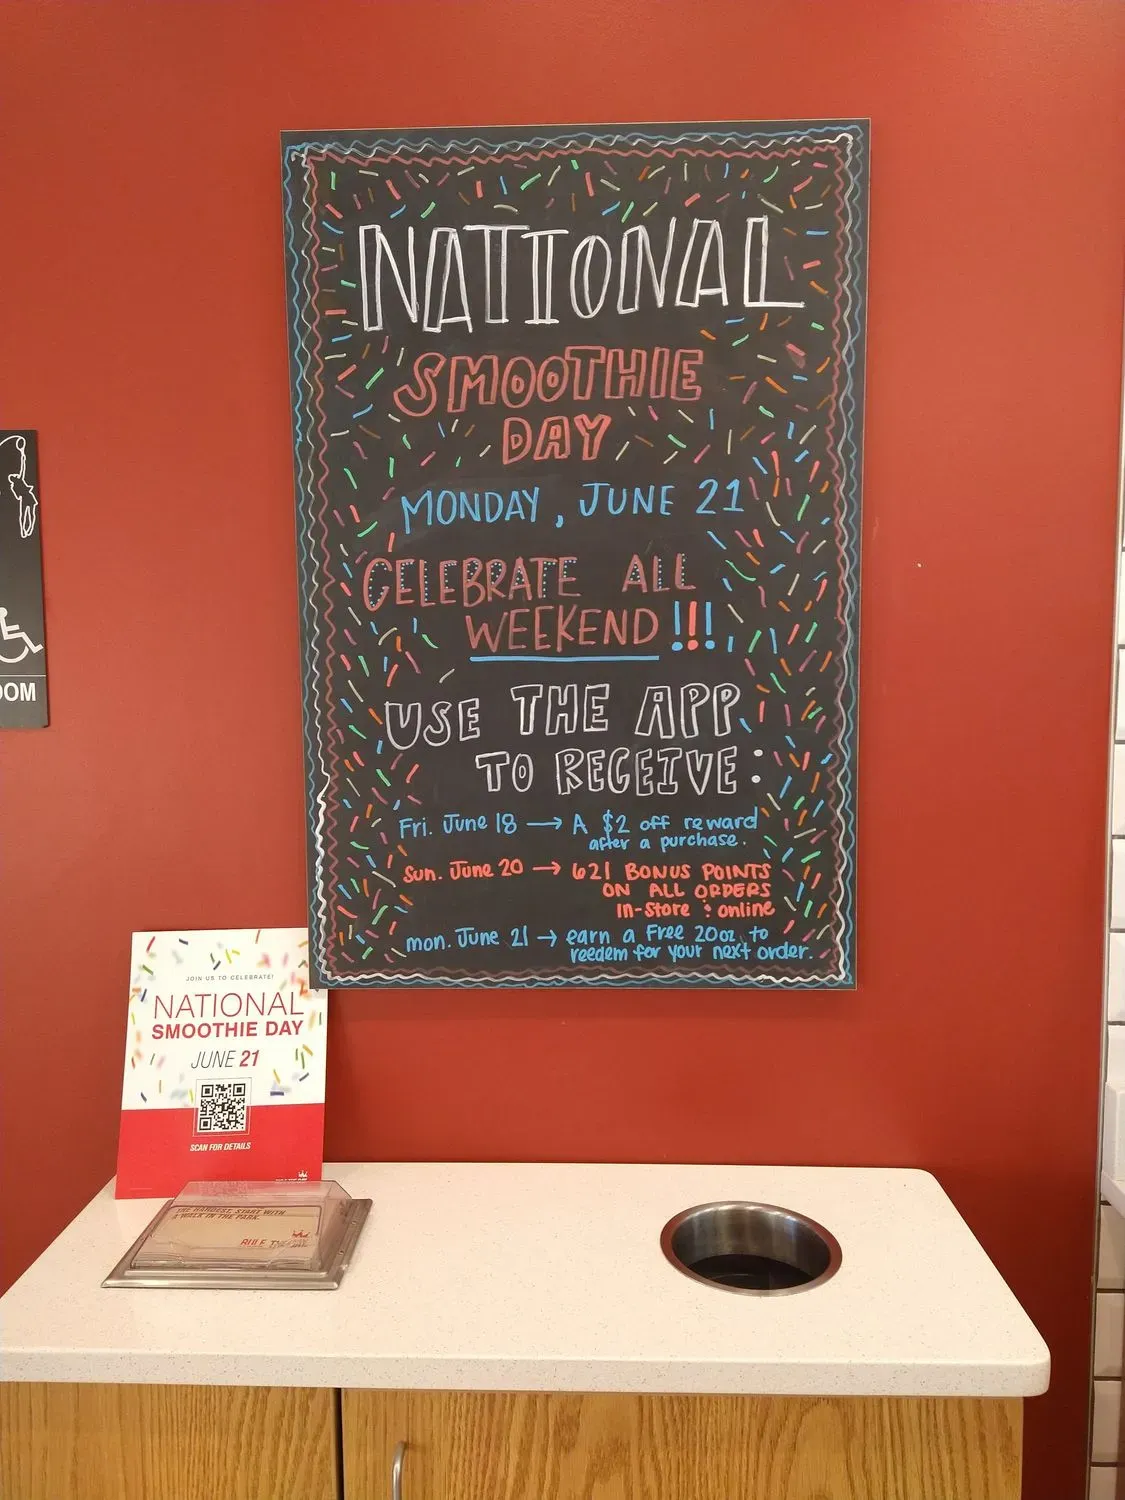 NATIONAL
SMOOTHIE
DAY
MONDAY, JUNE 21
CELEBRATE ALL
WEEKEND!!!
USE THE APP
TO RECEIVE:
Fri. June 18 → A $2 off reward
after a purchase.
Sun. June 20 → 621 BONUS POINTS
ON ALL ORDERS
In-Store & online
mon. June 21 → earn a Free 20oz. to
reedem for your next order.
OOM
JOIN US TO CELEBRATE!
NATIONAL
SMOOTHIE DAY
JUNE 21
SCAN FOR DETAILS
THE HARDEST, START WITH
A WALK IN THE PARK.
RULE THE